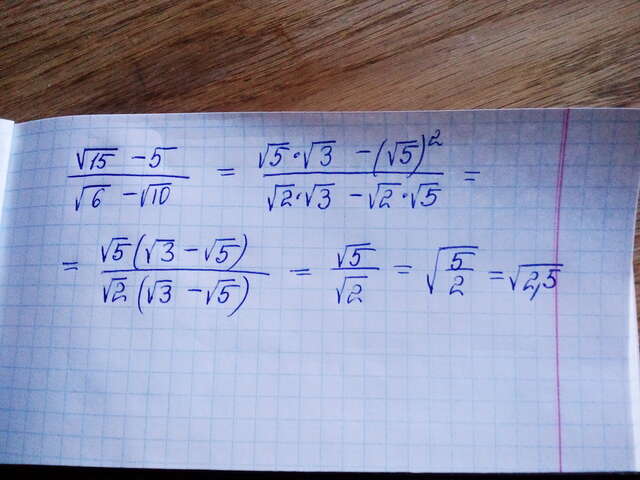 (√15 - 5)/(√6 - √10) = (√5·√3 - (√5)²)/(√2·√3 - √2·√5) =
= (√5(√3 - √5))/(√2(√3 - √5)) = √5/√2 = √(5/2) = √2,5